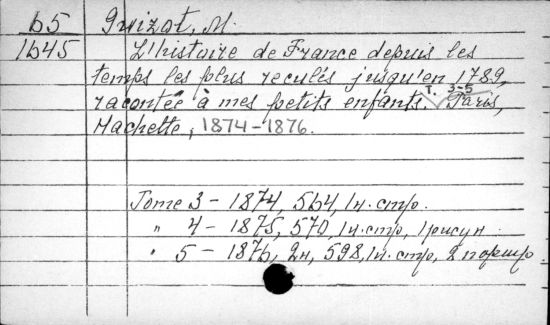 b5 Guizot, M.
1b45 L'histoire de France depuis les
temps les plus reculés jusqu'en 1789,
racontée à mes petits enfants. T. 3-5 Paris,
Hachette, 1874-1876.
Tome 3 - 1874, 5b4, 1н. стр.
" 4 - 1875, 570, 1н. стр, 1 рисун
" 5 - 187b, 2н, 598, 1н. стр, 2 портр.